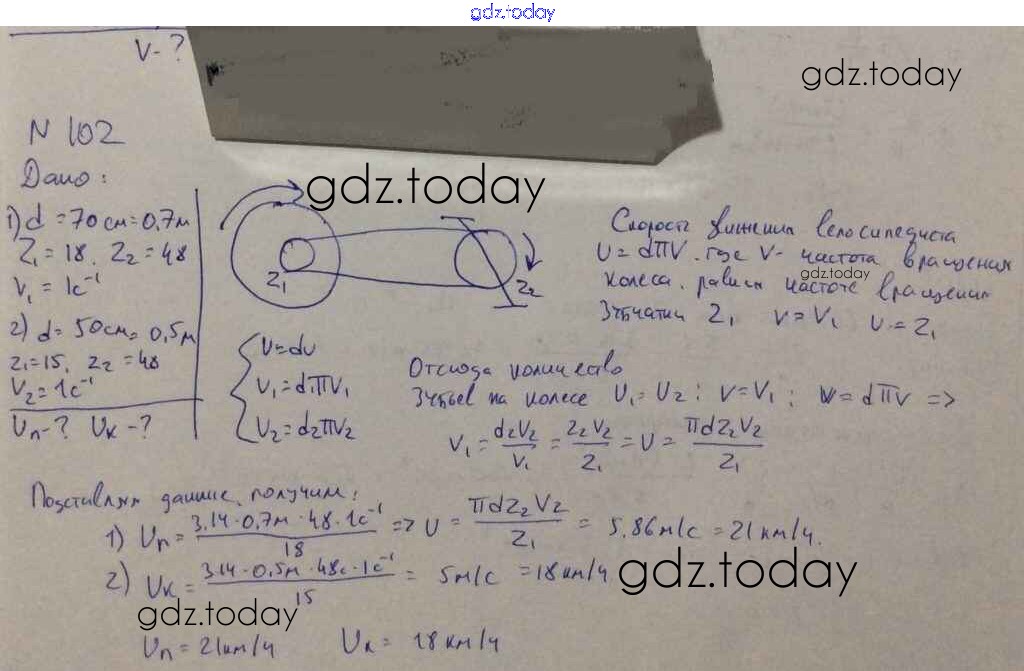 gdz.today
V - ?
gdz.today
N 102
Дано:
gdz.today
1) d = 70 см = 0,7 м
Z₁ = 18, Z₂ = 48
V₁ = 1c⁻¹
2) d = 50 см = 0,5 м
z₁ = 15, z₂ = 48
V₂ = 1c⁻¹
Uп - ? Uк - ?
Z₁
Z₂
Скорость движения велосипедиста
U = dπV, где V - частота вращения
gdz.today
колеса, равна частоте вращения
Зубчатки Z₁ V = V₁ U = Z₁
U = dυ
υ₁ = d₁πV₁
U₂ = d₂πV₂
Отсюда количество
Зубьев на колесе U₁ = U₂; V = V₁; = dπV =>
V₁ = d₂V₂/V₁ = Z₂V₂/Z₁ = U = πdZ₂V₂/Z₁
Подставляя данные, получим:
1) Uп = 3,14·0,7м·48·1c⁻¹/18 => U = πdZ₂V₂/Z₁ = 5,86м/с = 21км/ч.
2) Uк = 3,14·0,5м·48с·1c⁻¹/15 = 5м/с = 18км/ч
gdz.today
gdz.today
Uп = 21км/ч Uк = 18км/ч